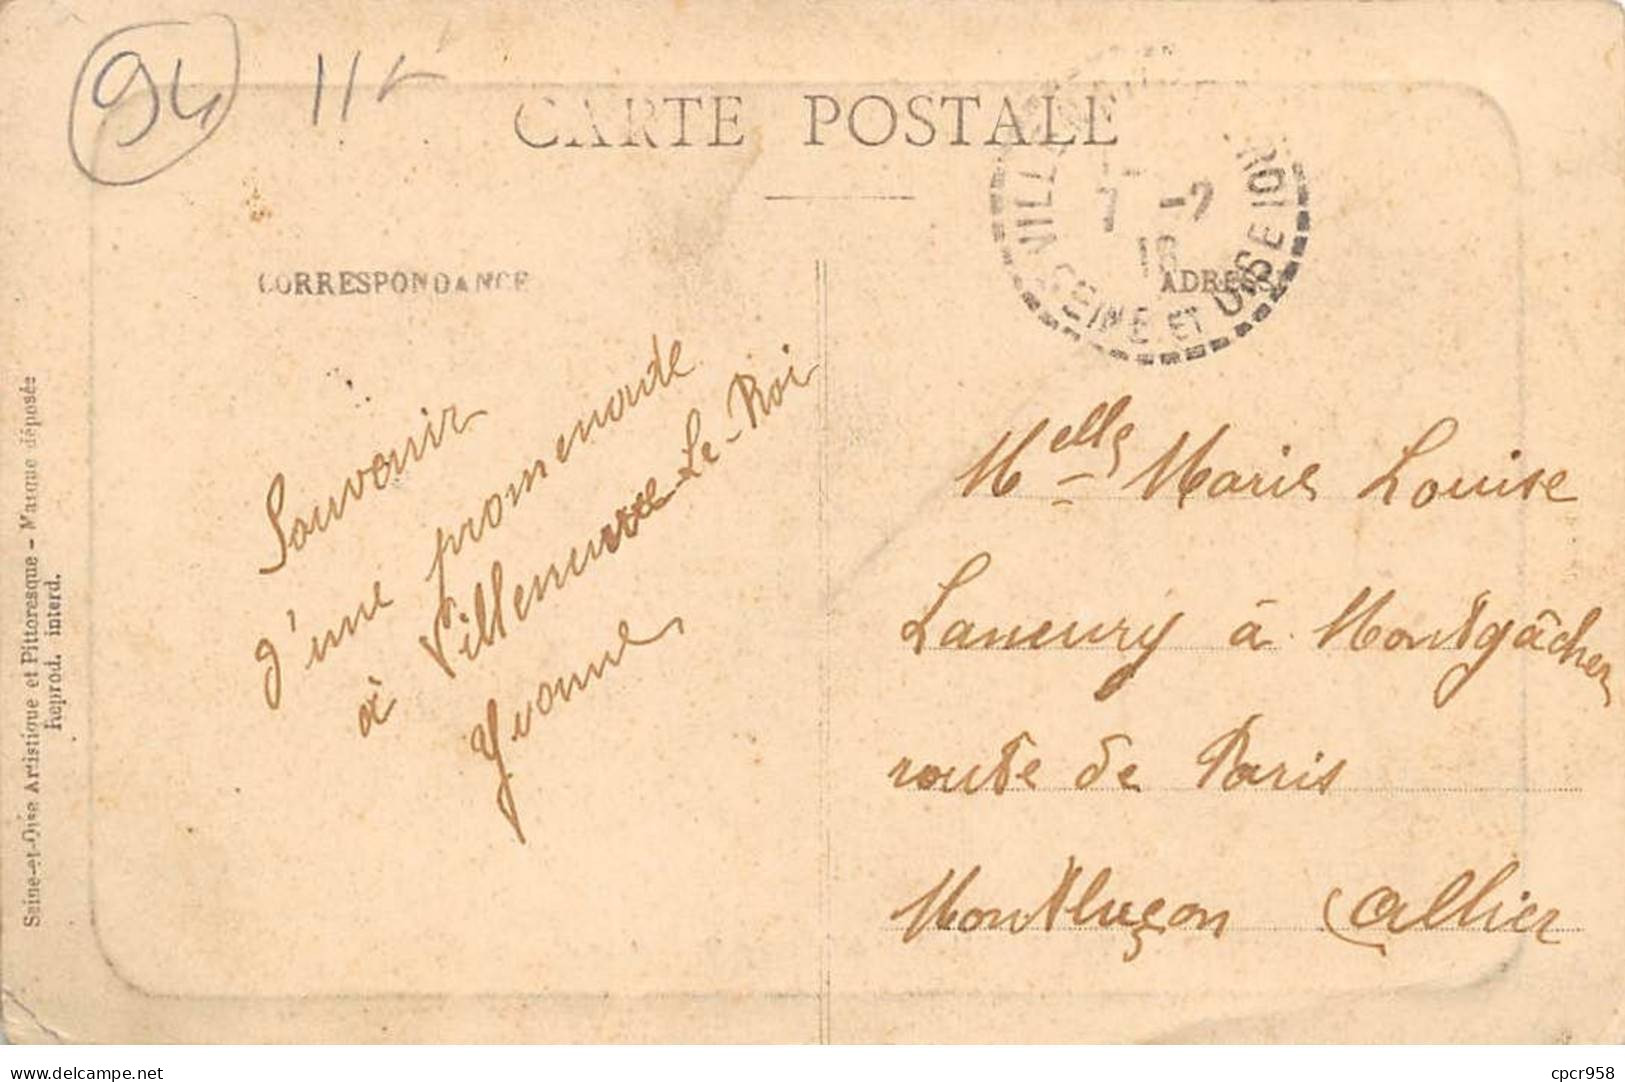 94 11
CARTE POSTALE
7 -2
16
SEINE ET OISE
CORRESPONDANCE
ADRESSE
Souvenir
d'une promenade
à Villeneuve-Le-Roi
Yvonne
Melle Marie Louise
Laneury à Montgâcher
route de Paris
Montluçon Allier
Seine-et-Oise Artistique et Pittoresque - Marque déposée
Reprod. interd.
www.delcampe.net
cpcr958